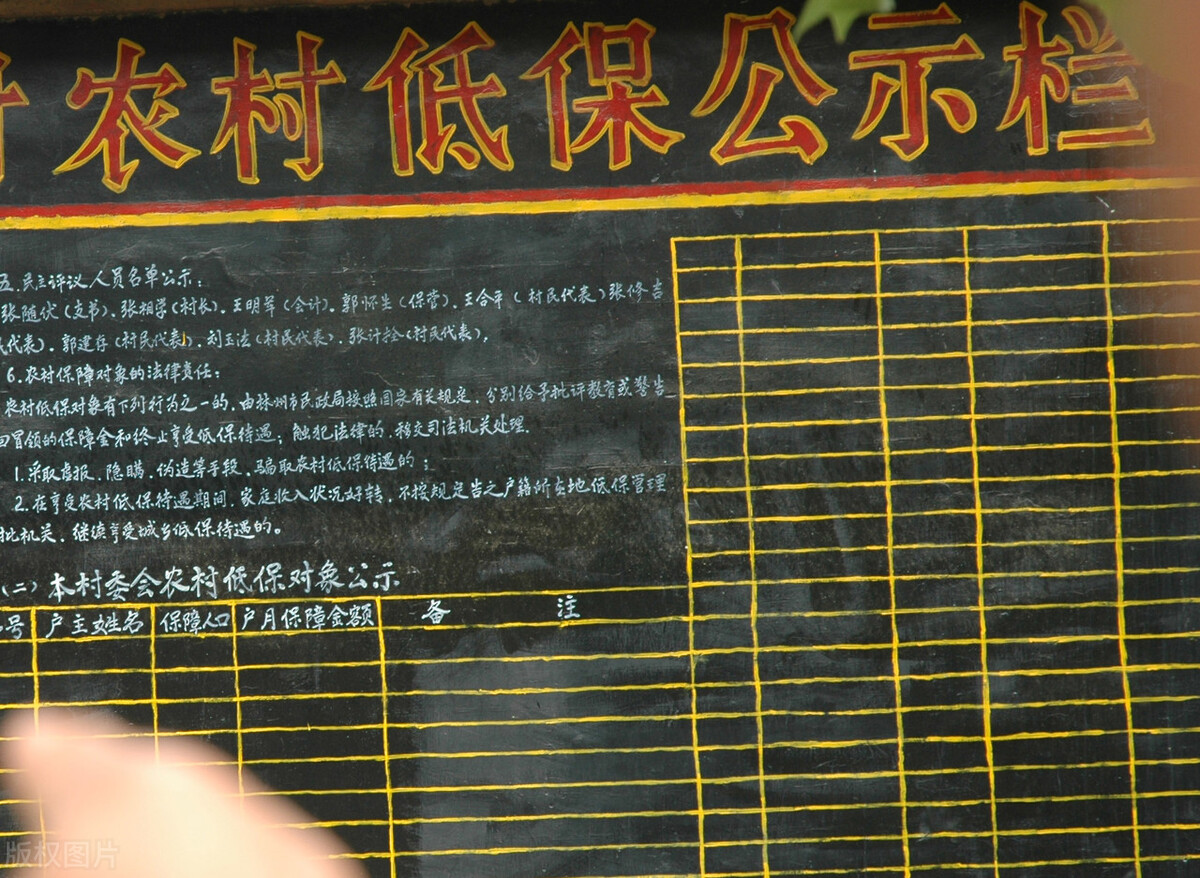 农村低保公示栏
五.民主评议人员名单公示:
张随伏(支书).张相学(村长).王明军(会计).郭怀生(保管).王合平(村民代表)张修吉
代表).郭建存(村民代表).刘玉法(村民代表).张计拴(村民代表).
6.农村保障对象的法律责任:
农村低保对象有下列行为之一的.由林州市民政局按照国家有关规定.分别给予批评教育或警告
回冒领的保障金和终止享受低保待遇;触犯法律的.移交司法机关处理.
1.采取虚报.隐瞒.伪造等手段.骗取农村低保待遇的;
2.在享受农村低保待遇期间.家庭收入状况好转.不按规定告之户籍所在地低保管理
批机关.继续享受城乡低保待遇的。
(二)本村委会农村低保对象公示
号 户主姓名 保障人口 户月保障金额 备 注
版权图片